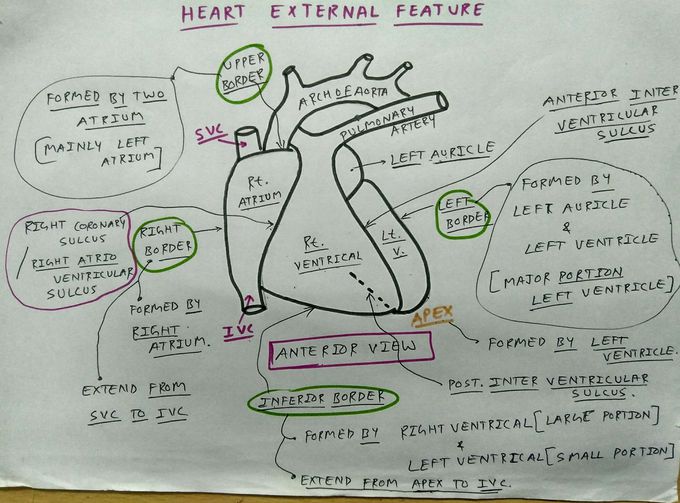 HEART EXTERNAL FEATURE
UPPER
BORDER
FORMED BY TWO
ATRIUM
[MAINLY LEFT
ATRIUM]
ARCH OF AORTA
PULMONARY
ARTERY
ANTERIOR INTER
VENTRICULAR
SULCUS
SVC
LEFT AURICLE
Rt.
ATRIUM
RIGHT CORONARY
SULCUS
/RIGHT ATRIO
VENTRICULAR
SULCUS
RIGHT
BORDER
Rt.
VENTRICAL
Lt.
V.
LEFT
BORDER
FORMED BY
LEFT AURICLE
&
LEFT VENTRICLE
[MAJOR PORTION
LEFT VENTRICLE]
FORMED BY
RIGHT
ATRIUM.
EXTEND FROM
SVC TO IVC
IVC
APEX
ANTERIOR VIEW
FORMED BY LEFT
VENTRICLE.
POST. INTER VENTRICULAR
SULCUS.
INFERIOR BORDER
FORMED BY RIGHT VENTRICAL [LARGE PORTION]
&
LEFT VENTRICAL [SMALL PORTION]
EXTEND FROM APEX TO IVC.